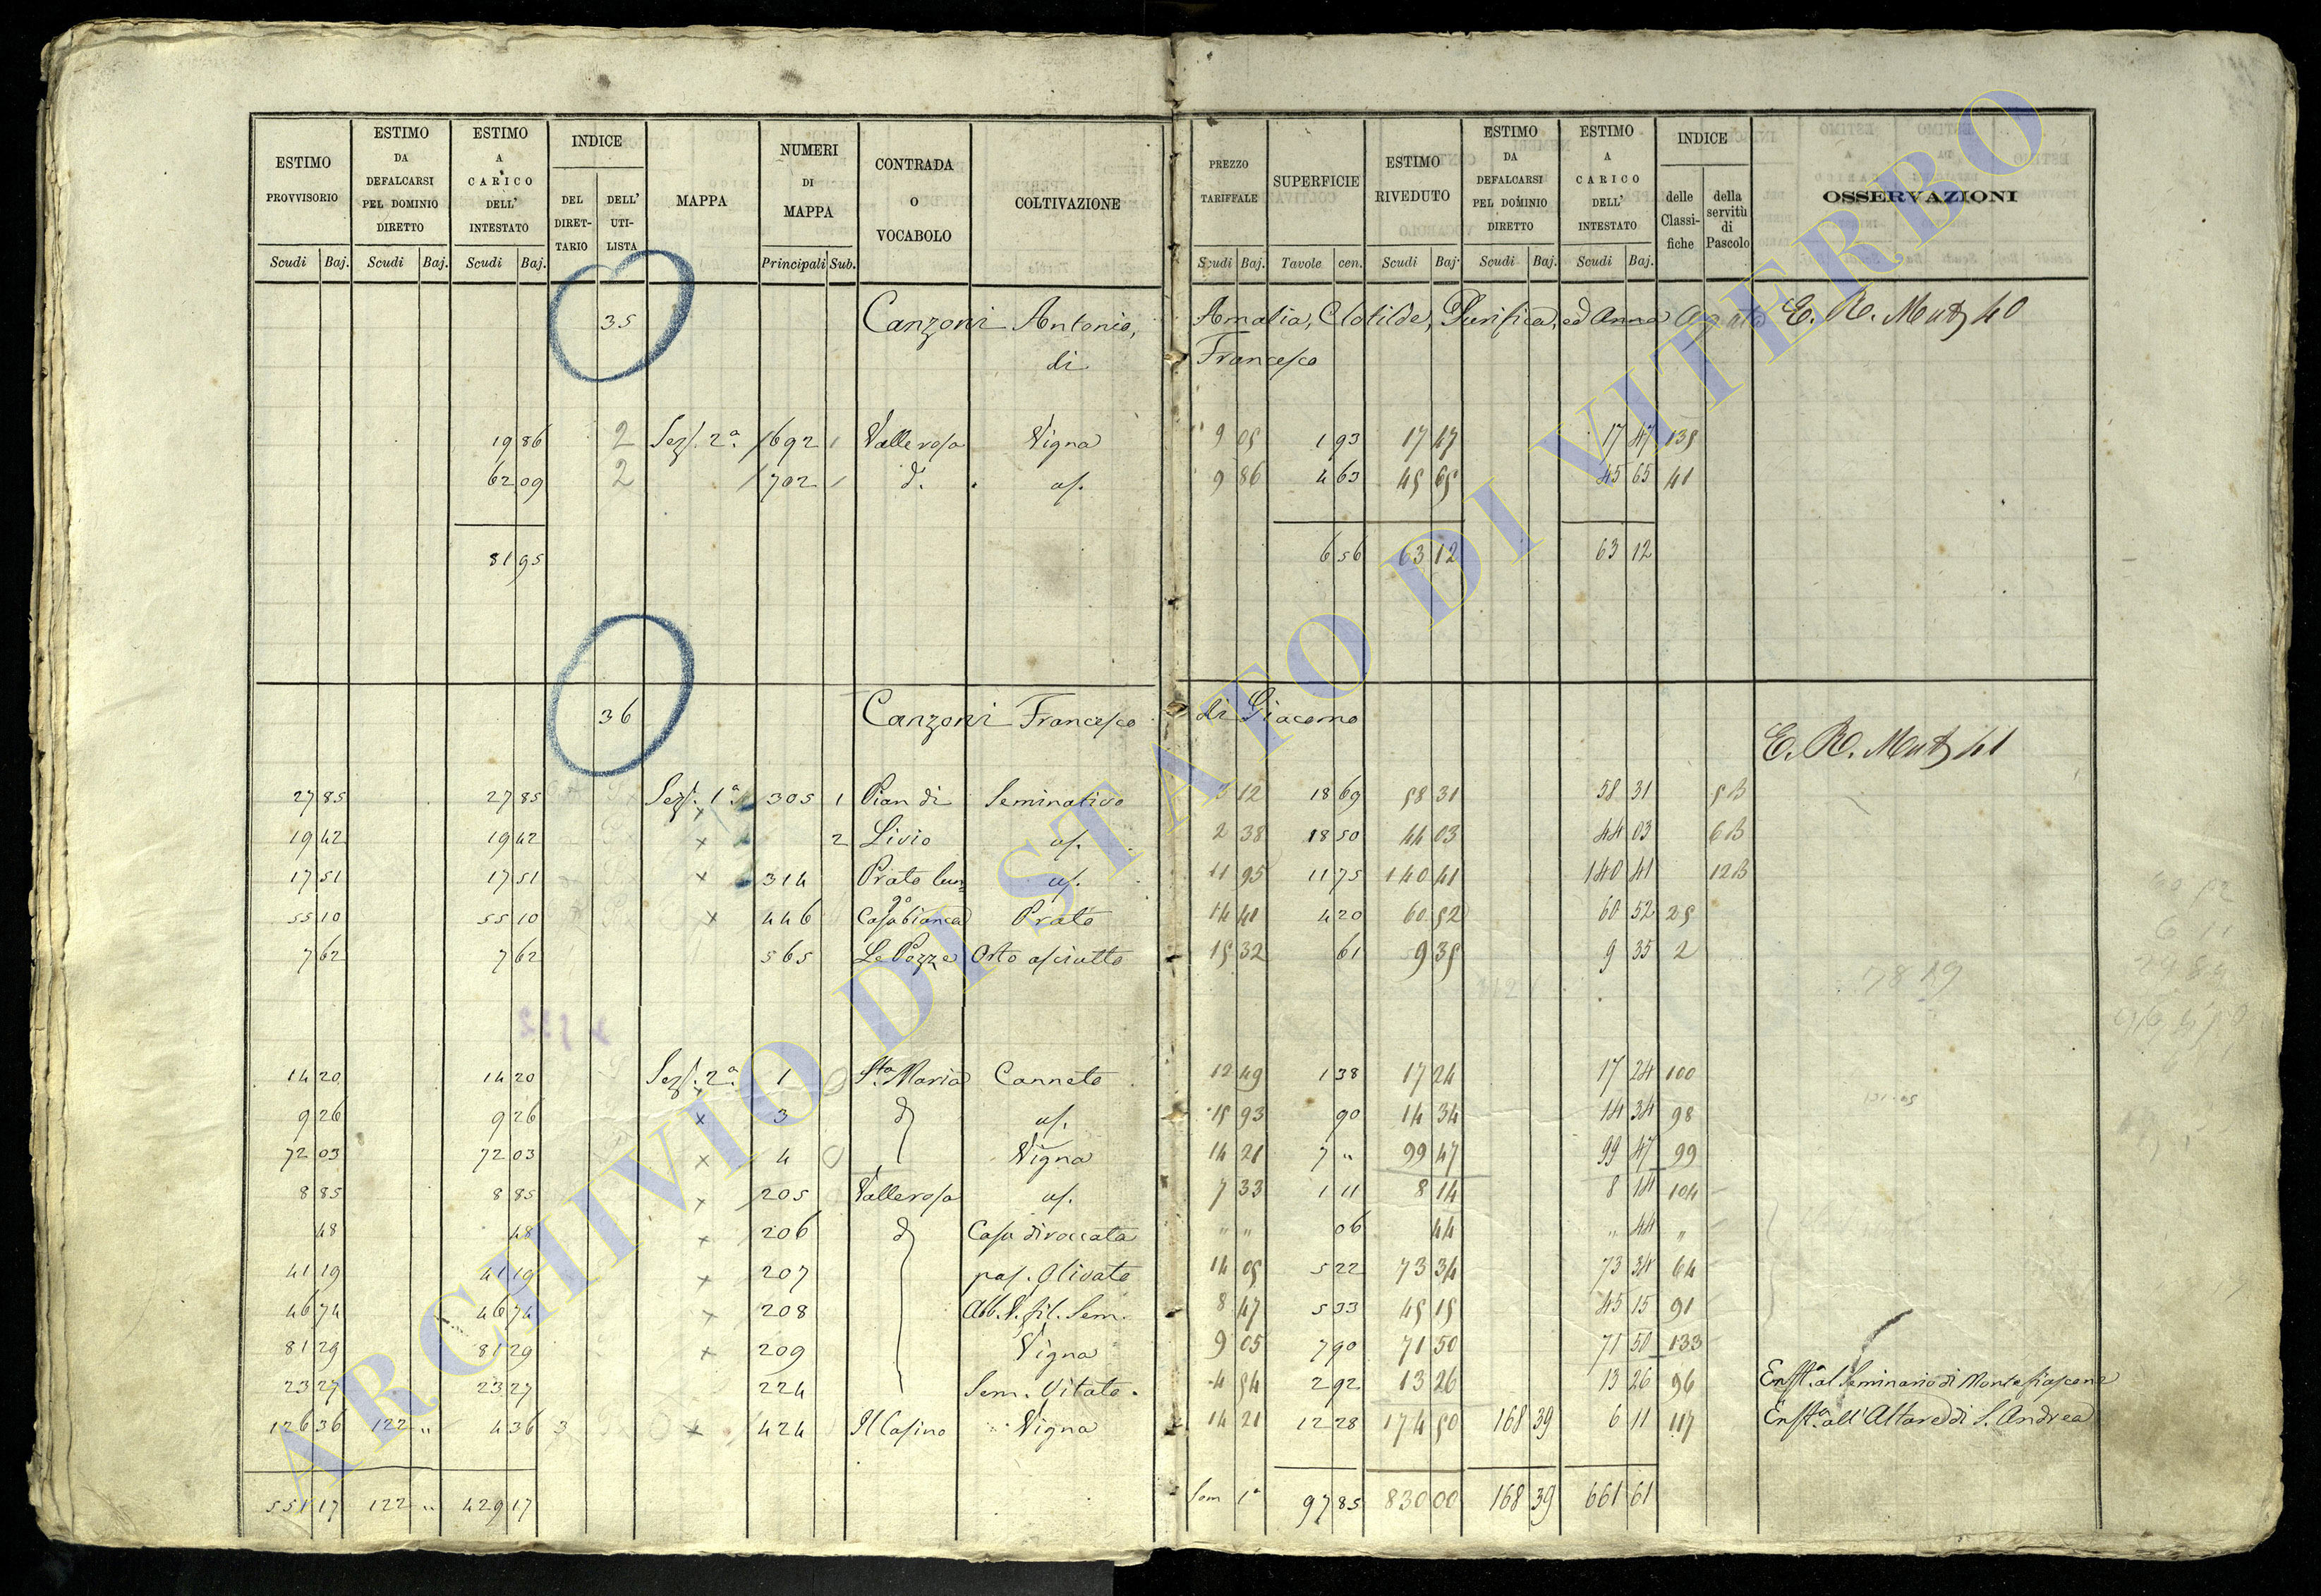 ESTIMO PROVVISORIO | ESTIMO DA DEFALCARSI PEL DOMINIO DIRETTO | ESTIMO A CARICO DELL' INTESTATO | INDICE DEL DIRET-TARIO | DELL' UTI-LISTA | MAPPA | NUMERI DI MAPPA | CONTRADA O VOCABOLO | COLTIVAZIONE | PREZZO TARIFFALE | SUPERFICIE | ESTIMO RIVEDUTO | ESTIMO DA DEFALCARSI PEL DOMINIO DIRETTO | ESTIMO A CARICO DELL' INTESTATO | INDICE delle Classi-fiche | della servitù di Pascolo | OSSERVAZIONI
Scudi | Baj. | Scudi | Baj. | Scudi | Baj. | Principali | Sub. | Scudi | Baj. | Tavole | cen. | Scudi | Baj. | Scudi | Baj. | Scudi | Baj.
35 Canzoni Antonio, Amalia, Clotilde, Purifica, ed Anna Agata E. R. Mut 40
di Francesco
19 86 | 2 | Sez. 2ª | 1692 | 1 | Vallerosa | Vigna | 9 05 | 1 93 | 17 47 | 17 47 | 135
62 09 | 2 | 1702 | 1 | d. | as. | 9 86 | 4 63 | 45 65 | 45 65 | 41
81 95 | 6 56 | 63 12 | 63 12
36 Canzoni Francesco di Giacomo
E. R. Mut 41
27 85 | 27 85 | Sez. 1ª | 305 | 1 | Pian di | Seminativo | 3 12 | 18 69 | 58 31 | 58 31 | 5B
19 42 | 19 42 | × | 2 | Livio | as. | 2 38 | 18 50 | 44 03 | 44 03 | 6B
17 51 | 17 51 | × | 314 | Prato lungo | as. | 11 95 | 11 75 | 140 41 | 140 41 | 12B
55 10 | 55 10 | × | 446 | Casabianca | Prato | 14 41 | 4 20 | 60 52 | 60 52 | 25
7 62 | 7 62 | 565 | Le Pozze | Orto asciutto | 15 32 | 61 | 9 35 | 9 35 | 2
14 20 | 14 20 | Sez. 2ª | 1 | Sta. Maria | Canneto | 12 49 | 1 38 | 17 24 | 17 24 | 100
9 26 | 9 26 | × | 3 | d | as. | 15 93 | 90 | 14 34 | 14 34 | 98
72 03 | 72 03 | × | 4 | Vigna | 14 21 | 7 " | 99 47 | 99 47 | 99
8 85 | 8 85 | × | 205 | Vallerosa | as. | 7 33 | 1 11 | 8 14 | 8 14 | 104
48 | 48 | × | 206 | d | Casa diroccata | " " | 06 | 44 | " 44 | "
41 19 | 41 19 | × | 207 | pas. Olivato | 14 05 | 5 22 | 73 34 | 73 34 | 64
46 74 | 46 74 | × | 208 | Abb. V. fil. Sem. | 8 47 | 5 33 | 45 15 | 45 15 | 91
81 29 | 81 29 | × | 209 | Vigna | 9 05 | 7 90 | 71 50 | 71 50 | 133
23 27 | 23 27 | 224 | Sem. Vitato. | 4 54 | 2 92 | 13 26 | 13 26 | 96 | Enfta. al Seminario di Montefiascone
126 36 | 122 " | 4 36 | 3 | × | 424 | Il Casino | Vigna | 14 21 | 12 28 | 174 50 | 168 39 | 6 11 | 117 | Enfta. all'Altare di S. Andrea
551 17 | 122 " | 429 17 | Som 1ª | 97 85 | 830 00 | 168 39 | 661 61
ARCHIVIO DI STATO DI VITERBO